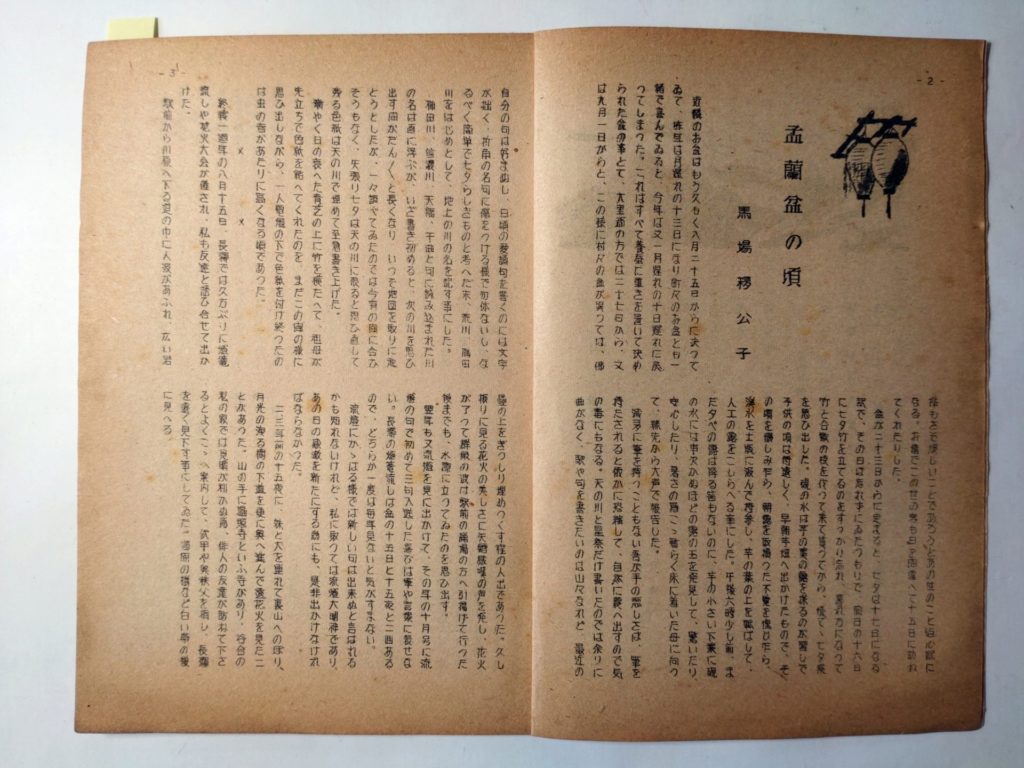 -2-
孟蘭盆の頃
馬場移公子
近頃のお盆はもう久もく八月二十五日からに決って
ゐて、昨年は月遅れの十三日になり町々のお盆とも一
緒で喜んでゐると、今年は又一月遅れの十日遅れに戻
ってしまった。これはすべて養蚕に重きを置いて決め
られた盆の事とて、大里郡の方では二十七日から、又
は九月一日からと、この様に村々の盆が違っては、佛
なる。お盆だこの世の客も日を間違へて十五日に訪れ
てくれたりした。
盆が二十三日からに定まると、七夕は十七日になる
訳で、その日は忘れずにゐたつもりで、前日の十六日
に七夕竹を立てるのをすっかり忘れ、暮れ方になって
竹と合歓の枝を伐って来て貰ってから、慌てゝ七夕祭
を思ひ出した。硯の水は芋の葉の露を採るのが習しで
子供の頃は毎違しく、早朝芋畑へ出かけたもので、そ
の頃を懐しみ乍ら、朝露を取損った不覚を愧ぢ乍ら、
人工の露をこしらへる事にした。午後六時少し前、ま
だ夕べの露は降る筈もないのに、芋の小さい下葉に硯
の水には事欠かぬほどの露の玉を発見して、驚いたり、
安心したり、暑さの為こゝ暫らく床に着いた母に向っ
て、縁先から大声で報告した。
消茅に筆を持つこともない吾が手の悲しさは、筆を
持たされると微かに緊縮して、自然に震へ出すので気
の毒にもなる。天の川と星祭だけ書いたのでは余りに
曲がなく、歌や句を書きたいのは山々なれど、最近の
-3-
自分の句は好まぬし、日頃の愛誦句を書くのには文字
が拙く、折角の名句に傷をつける様で勿体ないし、な
るべく簡単で七夕らしきものと考へた末、荒川　隅田
川をはじめとして、地上の川の名を記す事にした。
隅田川　信濃川　天龍　千曲と句に詠み込まれた川
の名は直に浮ぶが、いざ書き初めると、次の川を思ひ
出す間がだん／＼と長くなり、いっそ地図を取りに走
とうとしたが、一々調べてゐたのでは今宵の間に合ひ
そうもなく、矢張り七夕は天の川に限ると思ひ直して
残る色紙は天の川で埋めて至急書き上げた。
漸やく日の衰へた青芝の上に竹を横たへて、祖母が
先立ちで色紙を結へてくれたのを、まだこの間の様に
思ひ出しながら、一人軒燈の下で色紙を付け終ったの
は虫の音があたりに高くなる頃であった。
×　　×　　×
終戦一週年の八月十五日、長瀞では久方ぶりに燈籠
流しや花火大会が催され、私も友達と誘ひ合せて出か
けた。
駅前から川原へ下る道の中に人波があふれ、広い岩
畳の上をぎっしり埋めつくす程の人出であった。久し
振りに見る花火の美しさに矢鱈感嘆の声を発し、花火
が了って群衆の波は駅前の商場の方へ引揚げて行った
後までも、水際に立ってゐたのを思ひ出す。
翌年も又流燈を見に出かけて、その年の十月号に流
燈の句で初めて三句入選した喜びは筆や言葉に表せな
い。長瀞の燈籠流しは盆の十五日と十五夜と二回ある
ので、どちらか一度は毎年見ないと気がすまない。
流燈にかゝはる様では新しい句は出来ぬと言はれる
かも知れないけれど、私に取っては流燈大明神であり、
あの日の感激を新たにする為にも、是非出かけなけれ
ばならなかった。
二三年前の十五夜に、妹と犬を連れて裏山へのぼり、
月光の洩る樹の下道を更に奥へ進んで遠花火を見たこ
とがあった。山の手に龍照寺といふ寺があり、谷合の
私の家では見晴が利かぬ為、俳人の友達が訪れて下さ
るとよくこゝへ案内して、武甲や奥秩父を指し、長瀞
を遠く見下す事にしてゐた。
に見へる。